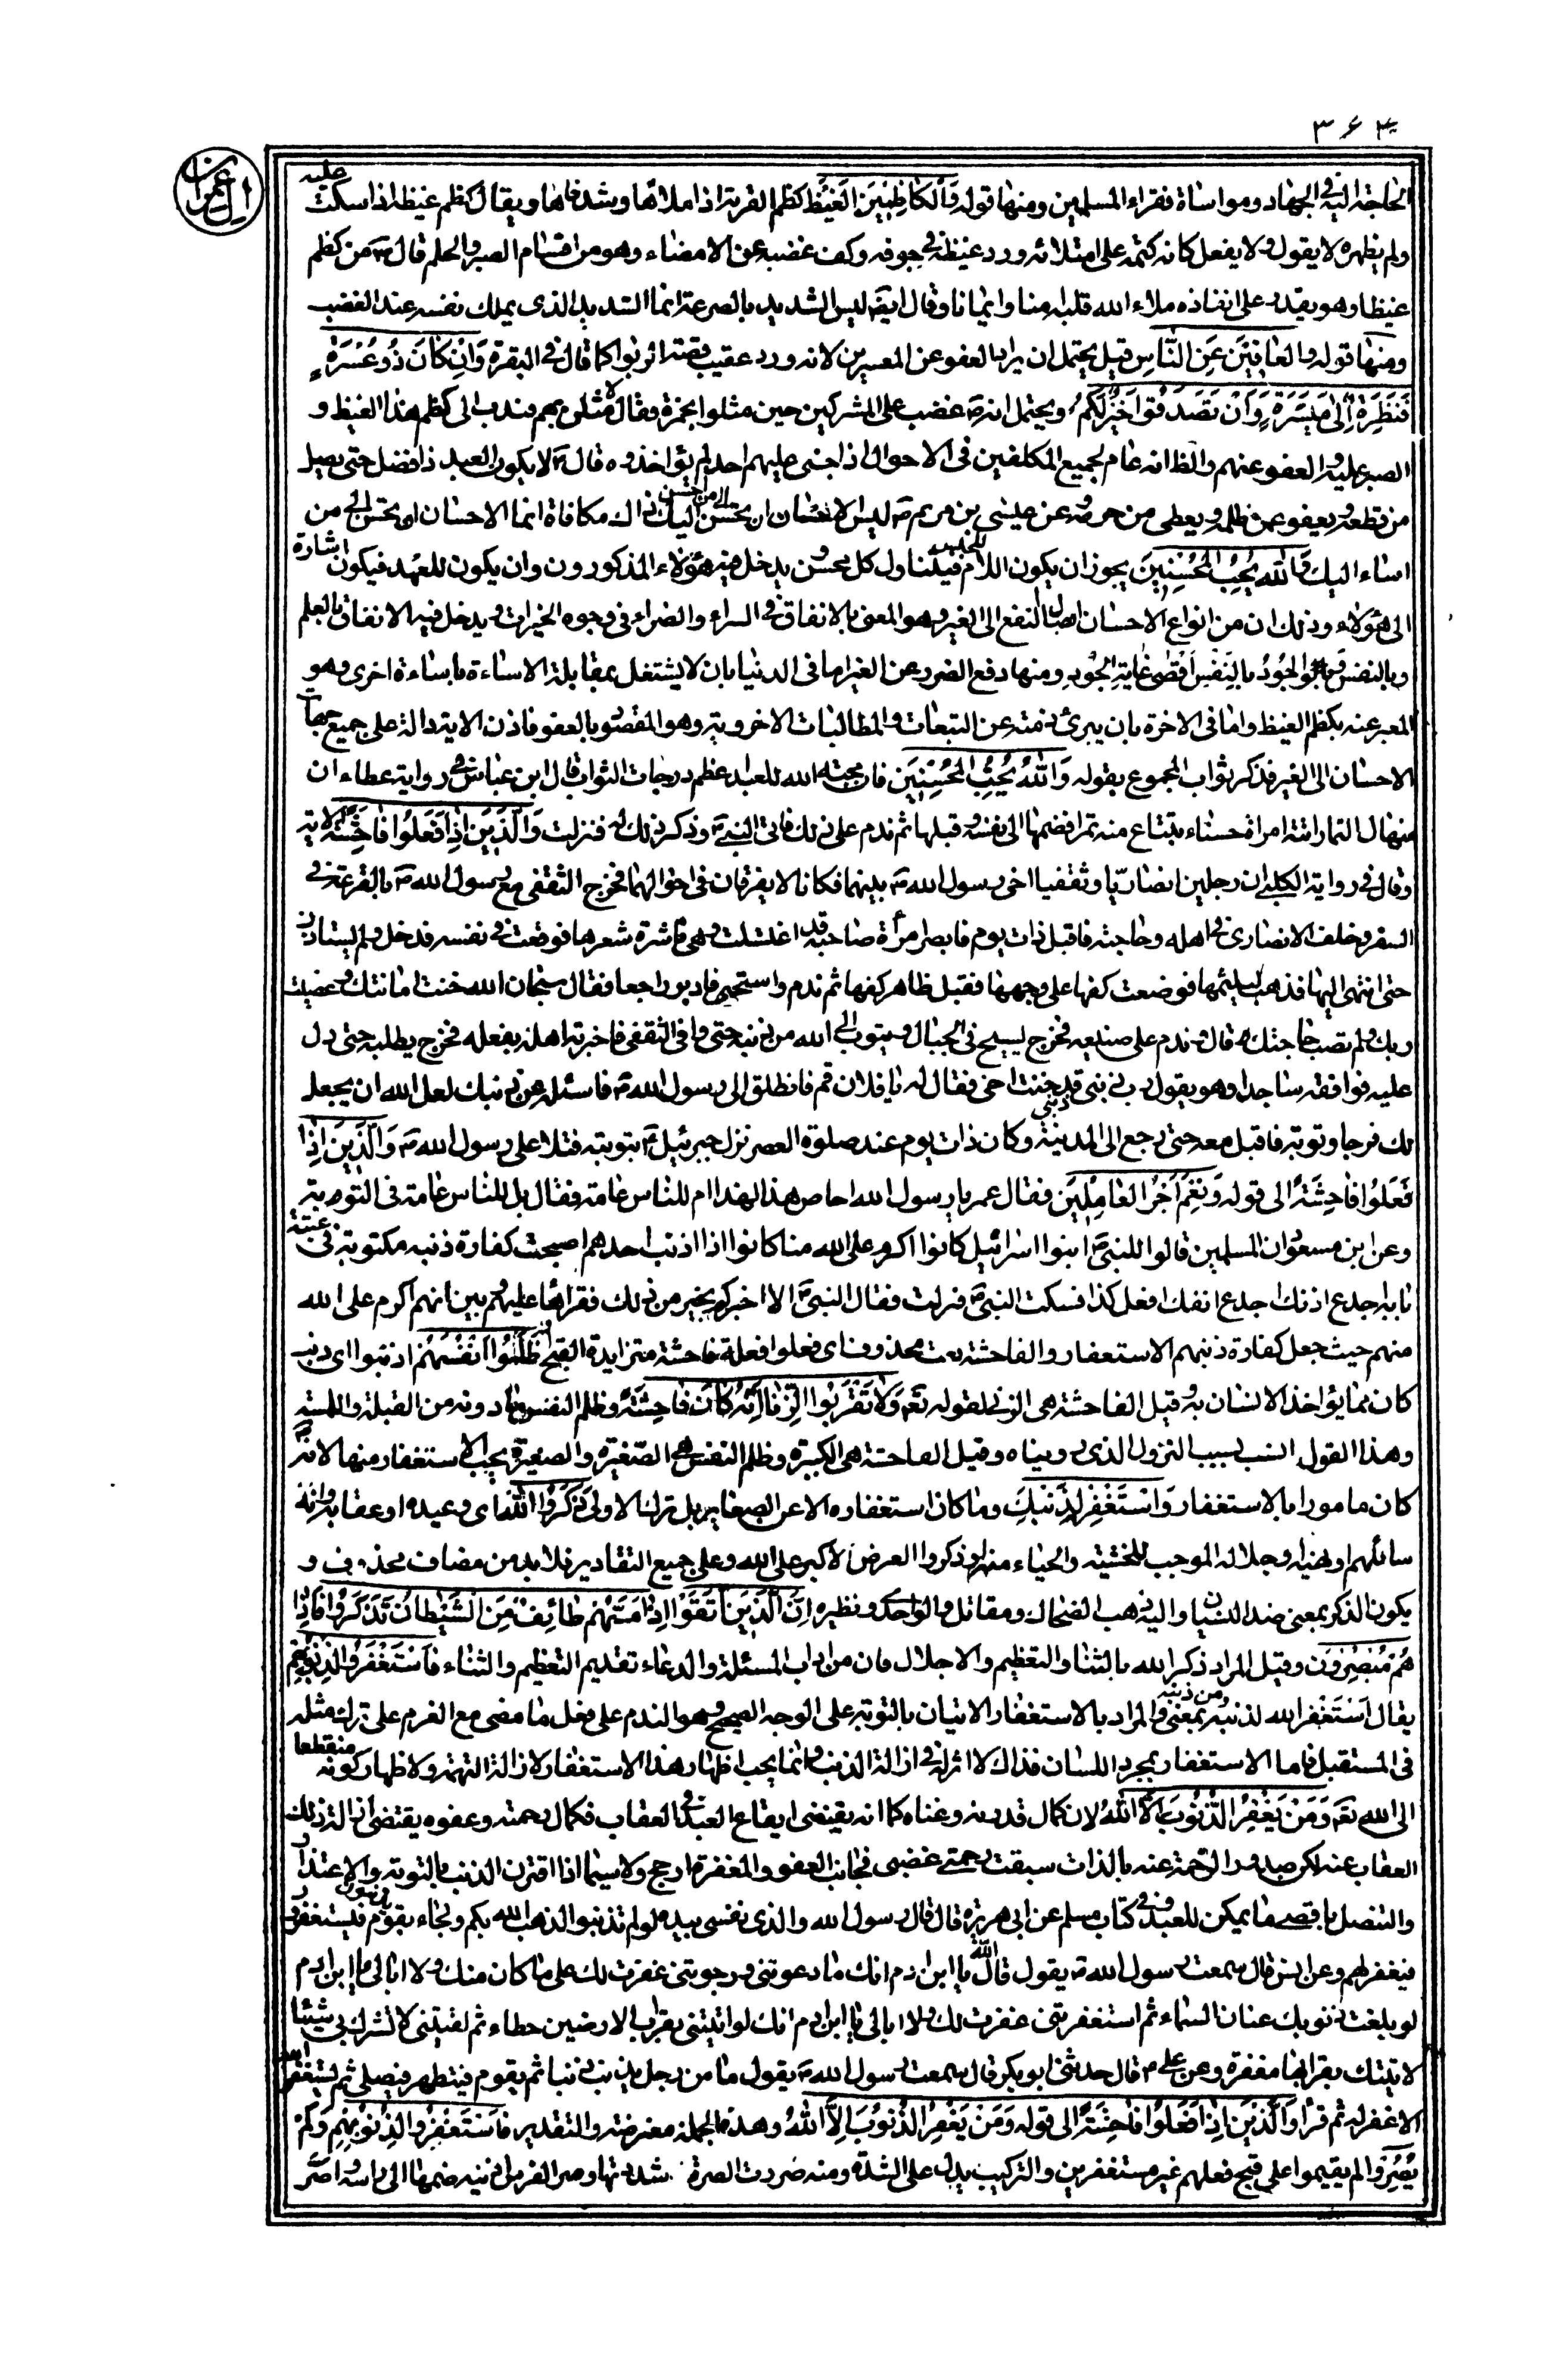 ۳۶۴
ال عمران
الحاجة اليه فى الجهاد ومواساة فقراء المسلمين ومنها قوله وَالْكَاظِمِينَ الْغَيْظَ كظم القربة اذا ملاها وشد فاها ويقال كظم غيظه اذا سكت عليه
ولم يظهره لا بقول ولا بفعل كانه كتمه على امتلائه ورد غيظه فى جوفه وكف غضبه عن الامضاء وهو من اقسام الصبر والحلم قال ص من كظم
غيظا وهو يقدر على انفاذه ملاء الله قلبه امنا وايمانا وقال ايضا ليس الشديد بالصرعة انما الشديد الذى يملك نفسه عند الغضب
ومنها قوله وَالْعَافِينَ عَنِ النَّاسِ قيل يحتمل ان يراد العفو عن المعسرين لانه ورد عقيب قصة الربوا كما قال فى البقرة وَاِنْ كَانَ ذُو عُسْرَةٍ
فَنَظِرَةٌ اِلٰى مَيْسَرَةٍ وَاَنْ تَصَدَّقُوا خَيْرٌ لَكُمْ ويحتمل انه ص غضب على المشركين حين مثلوا بحمزة وقال لامثلن بهم فندب الى كظم هذا الغيظ و
الصبر عليه والعفو عنهم والظ انه عام لجميع المكلفين فى الاحوال اذا جنى عليهم احد لم يؤاخذوه قال ص لا يكون العبد ذا فضل حتى يصل
من قطعه ويعفو عمن ظلمه ويعطى من حرمه وعن عيسى بن مريم ع ليس الاحسان ان تحسن الى من احسن اليك ذاك مكافاة انما الاحسان ان تحسن الى من
اساء اليك وَاللهُ يُحِبُّ الْمُحْسِنِينَ يجوز ان يكون اللام للجنس فيتناول كل محسن ويدخل فيه هؤلاء المذكورون وان يكون للعهد فيكون اشارة
الى هؤلاء وذلك ان من انواع الاحسان ايصال النفع الى الغير وهو المعنى بالانفاق فى السراء والضراء فى وجوه الخيرات ويدخل فيه الانفاق بالعلم
وبالنفس وَالْجُودُ بِالنَّفْسِ اَقْصٰى غَايَةِ الْجُودِ ومنها دفع الضرر عن الغير اما فى الدنيا بان لا يشتغل بمقابلة الاساءة باساءة اخرى وهو
المعبر عنه بكظم الغيظ واما فى الاخرة بان يبرئ ذمته عن التبعات والمطالبات الاخروية وهو المقصود بالعفو فاذن الاية دالة على جميع جهات
الاحسان الى الغير فذكر ثواب المجموع بقوله وَاللهُ يُحِبُّ الْمُحْسِنِينَ فان محبة الله للعبد اعظم درجات الثواب قال ابن عباس فى رواية عطاء ان
منهال التمار اتته امراة حسناء تبتاع منه تمرا فضمها الى نفسه وقبلها ثم ندم على ذلك فاتى النبى ص وذكر ذلك له فنزلت وَالَّذِينَ اِذَا فَعَلُوا فَاحِشَةً الاية
وقال فى رواية الكلبى ان رجلين انصاريا وثقفيا اخى رسول الله ص بينهما فكانا لا يفترقان فى احوالهما فخرج الثقفى مع رسول الله ص بالقرعة فى
السفر وخلف الانصارى فى اهله وحاجته فاقبل ذات يوم فابصر امرأة صاحبه قد اغتسلت وهى ناشرة شعرها فوقعت فى نفسه فدخل ولم يستاذن
حتى انتهى اليها فذهب ليلثمها فوضعت كفها على وجهها فقبل ظاهر كفها ثم ندم واستحيى فادبر راجعا فقال سبحان الله خنت امانتك وعصيت
ربك ولم تصب حاجتك قال وندم على صنيعه فخرج يسيح فى الجبال ويتوب الى الله من ذنبه حتى وافى الثقفى فاخبرته اهله بفعله فخرج يطلبه حتى دل
عليه فوافقه ساجدا وهو يقول رب ذنبى ذنبى قد خنت اخى فقال له يا فلان قم فانطلق الى رسول الله ص فاسئله عن ذنبك لعل الله ان يجعل
لك فرجا وتوبة فاقبل معه حتى رجع الى المدينة وكان ذات يوم عند صلوة العصر نزل جبرئيل ع بتوبته فتلا على رسول الله ص وَالَّذِينَ اِذَا
فَعَلُوا فَاحِشَةً الى قوله وَنِعْمَ اَجْرُ الْعَامِلِينَ فقال عمر يا رسول الله اخاص هذا لهذا ام للناس عامة فقال بل للناس عامة فى التوبة
وعن ابن مسعود ان المسلمين قالوا للنبى ص ابنوا اسرائيل كانوا اكرم على الله منا كانوا اذا اذنب احدهم اصبحت كفارة ذنبه مكتوبة فى عتبة
بابه اجدع اذنك اجدع انفك افعل كذا فسكت النبى ص فنزلت فقال النبى ص الا اخبركم بخير من ذلك فقراها عليهم وبين انهم اكرم على الله
منهم حيث جعل كفارة ذنبهم الاستغفار والفاحشة نعت محذوف اى فعلوا فعلة فاحشة متزايدة القبح ظَلَمُوا اَنْفُسَهُمْ اذنبوا اى ذنب
كان مما يؤاخذ الانسان به وقيل الفاحشة هى الزنى لقوله تع وَلَا تَقْرَبُوا الزِّنَا اِنَّهُ كَانَ فَاحِشَةً وظلم النفس ما دونه من القبلة واللمسة
وهذا القول انسب بسبب النزول الذى رويناه وقيل الفاحشة هى الكبيرة وظلم النفس هى الصغيرة والصغيرة يجب الاستغفار منها لانه ص
كان مامورا بالاستغفار وَاسْتَغْفِرْ لِذَنْبِكَ وما كان استغفاره الا عن الصغاير بل ترك الاولى ذَكَرُوا اللهَ اى وعيده او عقابه وانه
سائلهم او نهيه وجلاله الموجب للخشية والحياء منه او ذكروا العرض الاكبر على الله وعلى جميع التقادير فلا بد من مضاف محذوف و
يكون الذكر بمعنى ضد النسيان واليه ذهب الضحاك ومقاتل والواحدى ونظيره اِنَّ الَّذِينَ اتَّقَوْا اِذَا مَسَّهُمْ طَائِفٌ مِنَ الشَّيْطَانِ تَذَكَّرُوا فَاِذَا
هُمْ مُبْصِرُونَ وقيل المراد ذكر الله بالثناء والتعظيم والاجلال فان من اداب المسئلة والدعاء تقديم التعظيم والثناء فَاسْتَغْفَرُوا لِذُنُوبِهِمْ
يقال استغفر الله لذنبه ومن ذنبه بمعنى والمراد بالاستغفار الاتيان بالتوبة على الوجه الصحيح وهو الندم على فعل ما مضى مع العزم على ترك مثله
فى المستقبل فاما الاستغفار بمجرد اللسان فذاك لا اثر له فى ازالة الذنب وانما يجب اظهار هذا الاستغفار لازالة التهمة ولاظهار كونه منقطعا
الى الله تع وَمَنْ يَغْفِرُ الذُّنُوبَ اِلَّا اللهُ لان كمال قدرته وغناه كما انه يقتضى ايقاع العبد فى العقاب فكمال رحمته وعفوه يقتضى ازالة ذلك
العقاب عنه لكن صدور الرحمة عنه بالذات سبقت رحمتى غضبى فجانب العفو والمغفرة ارجح ولا سيما اذا اقترن الذنب بالتوبة والاعتذار
والتنصل باقصى ما يمكن للعبد وفى كتاب مسلم عن ابى هريرة قال قال رسول الله والذى نفسى بيده لو لم تذنبوا لذهب الله بكم ولجاء بقوم يذنبون فيستغفرون
فيغفر لهم وعن انس قال سمعت رسول الله ص يقول قال الله يا ابن ادم انك ما دعوتنى ورجوتنى غفرت لك على ما كان منك ولا ابالى يا ابن ادم
لو بلغت ذنوبك عنان السماء ثم استغفرتنى غفرت لك ولا ابالى يا ابن ادم انك لو اتيتنى بقراب الارضين خطاء ثم لقيتنى لا تشرك بى شيئا
لاتيتك بقرابها مغفرة وعن على ع قال حدثنى ابو بكر قال سمعت رسول الله ص يقول ما من رجل يذنب ذنبا ثم يقوم فيتطهر فيصلى ثم يستغفر الله
الا غفر له ثم قرأ وَالَّذِينَ اِذَا فَعَلُوا فَاحِشَةً الى قوله وَمَنْ يَغْفِرُ الذُّنُوبَ اِلَّا اللهُ وهذه الجملة معترضة والتقدير فاستغفروا لِذُنُوبِهِمْ وَلَمْ
يُصِرُّوا لم يقيموا على قبح فعلهم غير مستغفرين والتركيب يدل على الشدة ومنه صررت الصرة شددتها وصر الفرس اذنيه ضمها الى راسه واصر